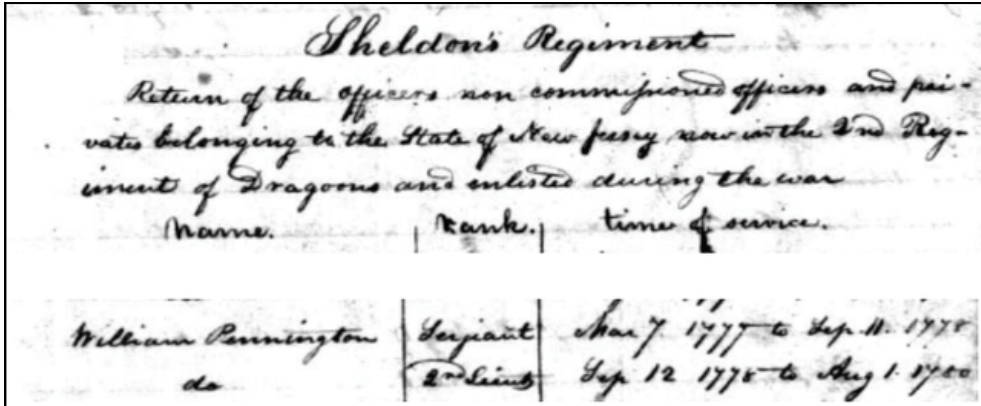 Sheldon's Regiment
Return of the officers non commissioned officers and pri-
vates belonging to the State of New Jersey now in the 2nd Reg-
iment of Dragoons and enlisted during the war
Name. Rank. time of service.
William Pennington Serjant Mar 7 1777 to Sep 11. 1778
do 2nd Lieut Sep 12 1778 to Aug 1. 1780